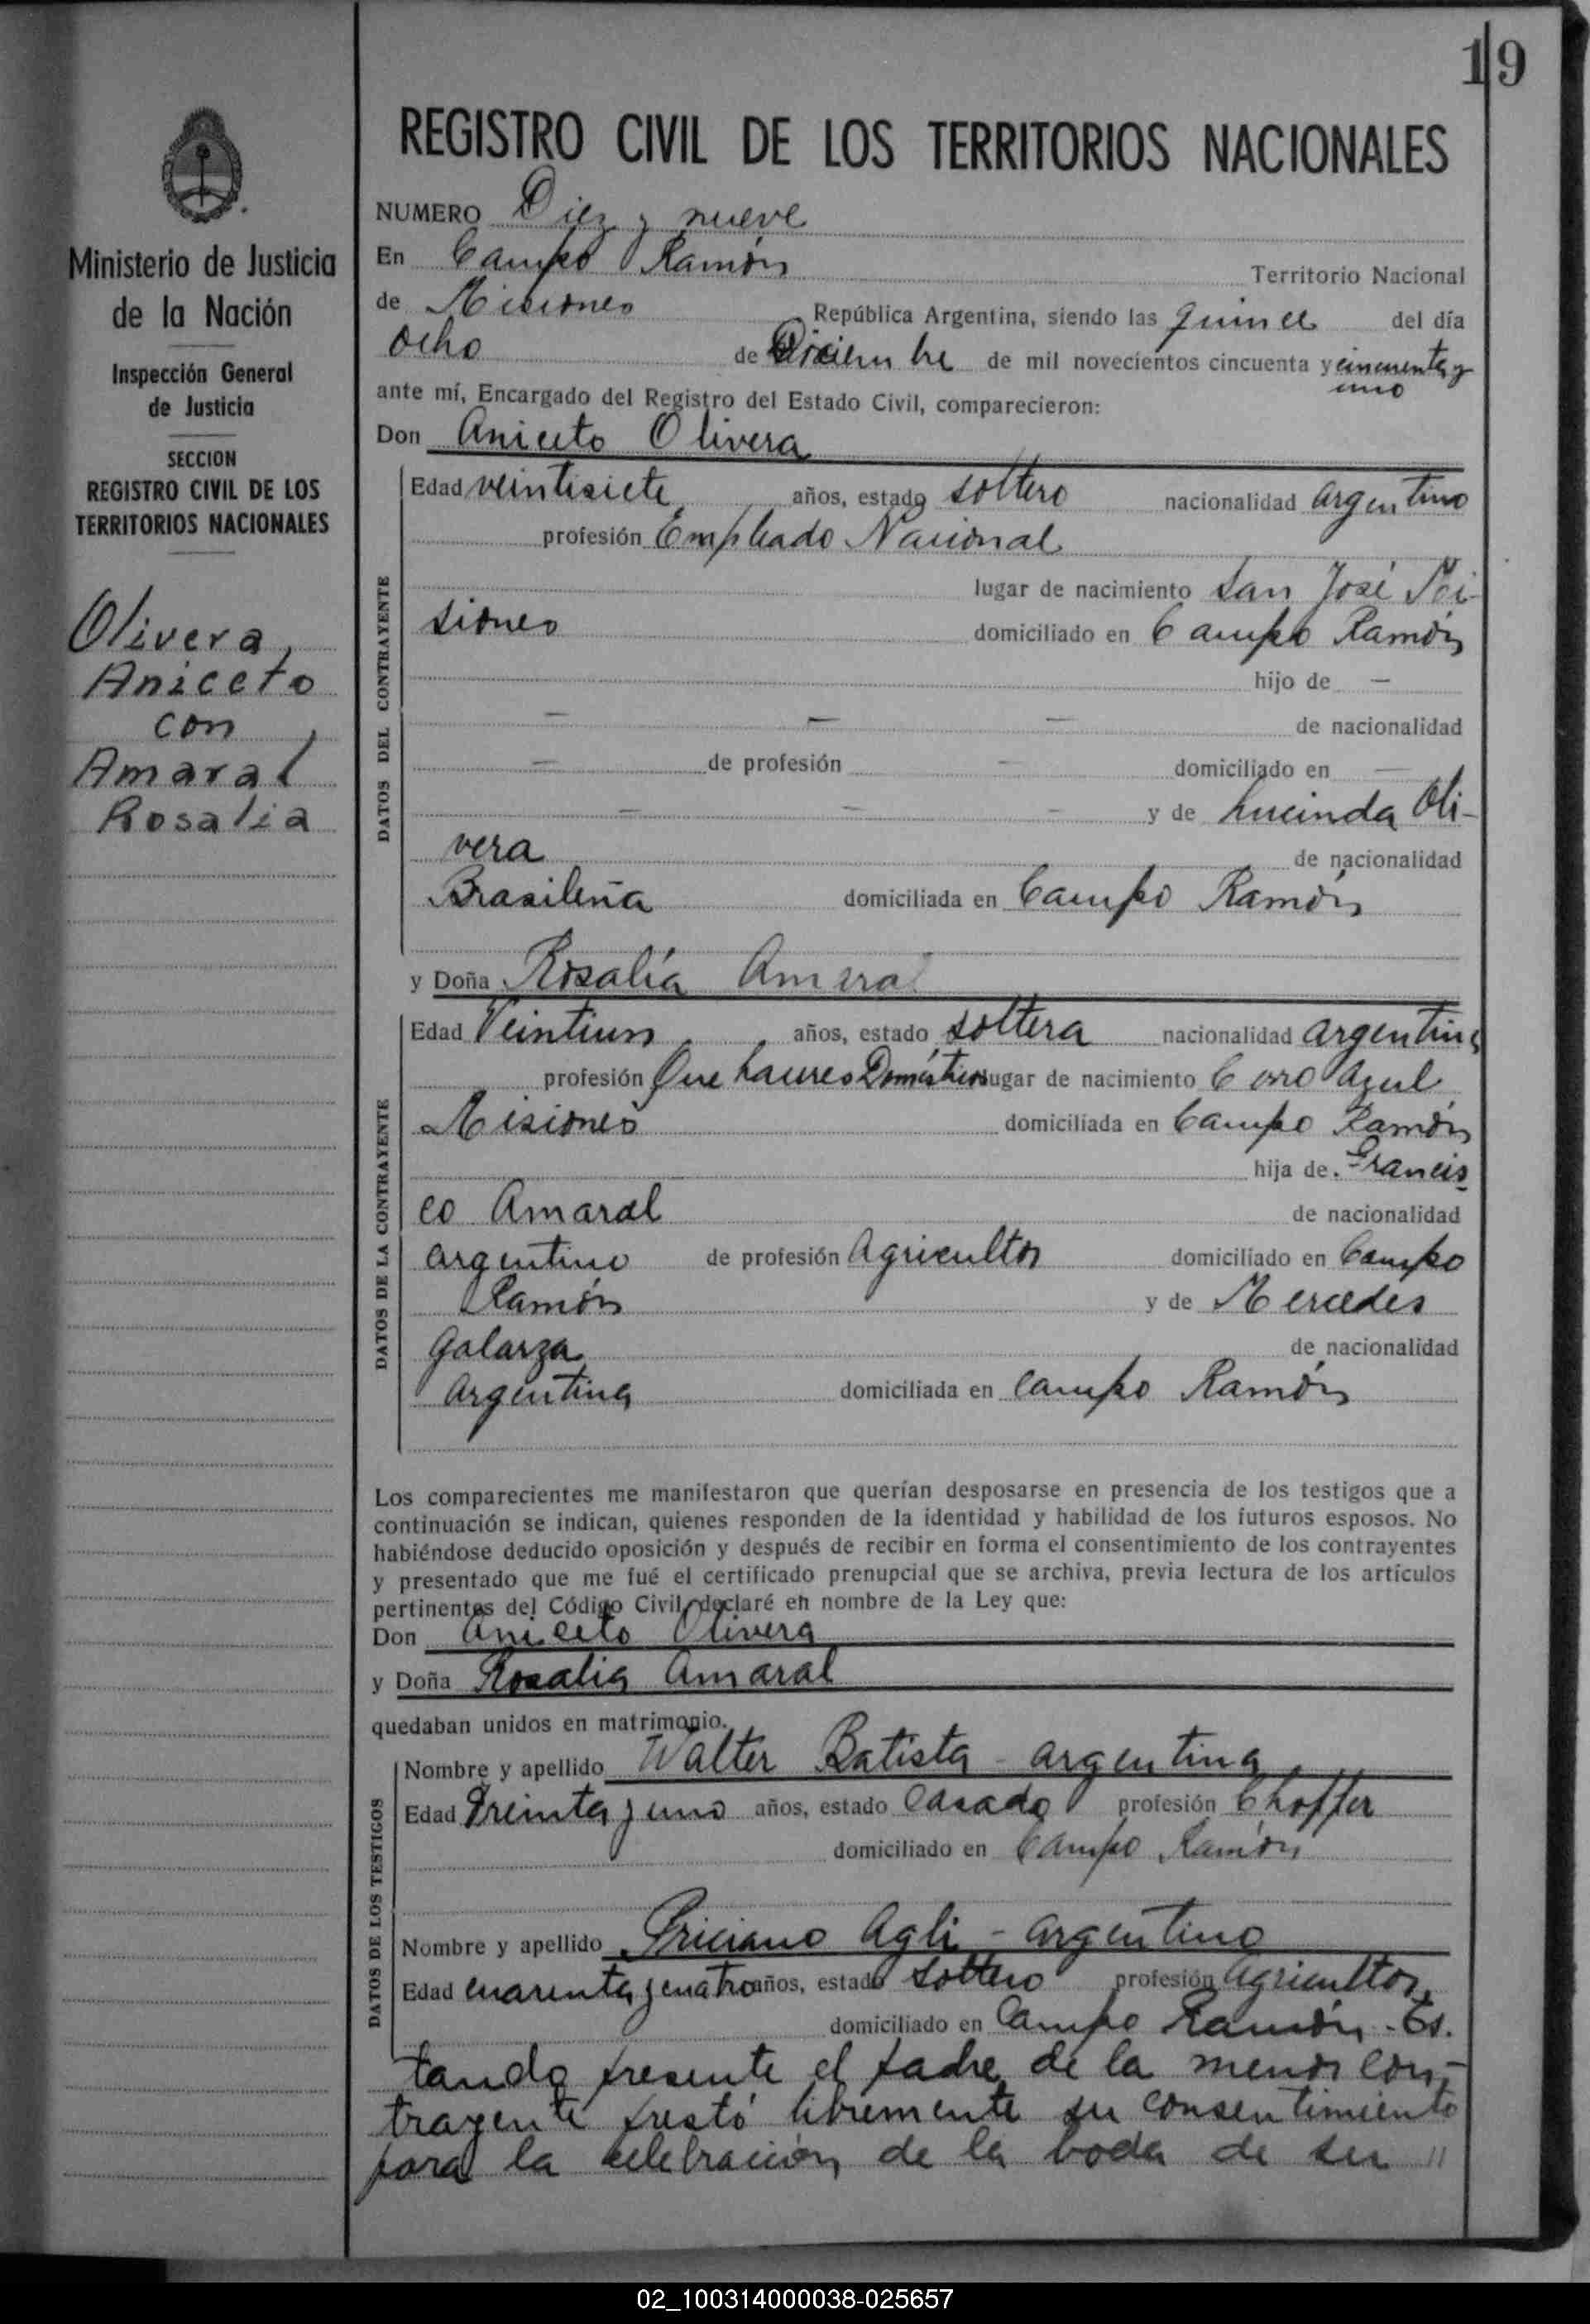 19
REGISTRO CIVIL DE LOS TERRITORIOS NACIONALES
Ministerio de Justicia
de la Nación
Inspección General
de Justicia
SECCION
REGISTRO CIVIL DE LOS
TERRITORIOS NACIONALES
Olivera,
Aniceto
con
Amaral
Rosalia
NUMERO Diez y nueve
En Campo Ramón Territorio Nacional
de Misiones República Argentina, siendo las quince del día
ocho de Diciembre de mil novecientos cincuenta y cincuenta y
uno
ante mí, Encargado del Registro del Estado Civil, comparecieron:
Don Aniceto Olivera
DATOS DEL CONTRAYENTE
Edad veintisiete años, estado soltero nacionalidad argentino
profesión Empleado Nacional
lugar de nacimiento San José Mi-
siones domiciliado en Campo Ramón
hijo de —
— — — de nacionalidad
— de profesión — domiciliado en —
— — — y de Lucinda Oli-
vera de nacionalidad
Brasileña domiciliada en Campo Ramón
y Doña Rosalía Amaral
DATOS DE LA CONTRAYENTE
Edad Veintiun años, estado soltera nacionalidad argentina
profesión Que haceres Domésticos lugar de nacimiento Cerro Azul
Misiones domiciliada en Campo Ramón
hija de Francis
co Amaral de nacionalidad
argentino de profesión Agricultor domiciliado en Campo
Ramón y de Mercedes
Galarza de nacionalidad
argentina domiciliada en Campo Ramón
Los comparecientes me manifestaron que querían desposarse en presencia de los testigos que a
continuación se indican, quienes responden de la identidad y habilidad de los futuros esposos. No
habiéndose deducido oposición y después de recibir en forma el consentimiento de los contrayentes
y presentado que me fué el certificado prenupcial que se archiva, previa lectura de los artículos
pertinentes del Código Civil, declaré en nombre de la Ley que:
Don Aniceto Olivera
y Doña Rosalia Amaral
quedaban unidos en matrimonio.
DATOS DE LOS TESTIGOS
Nombre y apellido Walter Batista - argentina
Edad Treinta y uno años, estado Casado profesión Choffer
domiciliado en Campo Ramón
Nombre y apellido Priciano Agli - argentino
Edad cuarenta y cuatro años, estado soltero profesión Agricultor,
domiciliado en Campo Ramón - Es.
tando presente el padre de la menor con-
trayente prestó libremente su consentimiento
para la celebración de la boda de su //
02_100314000038-025657